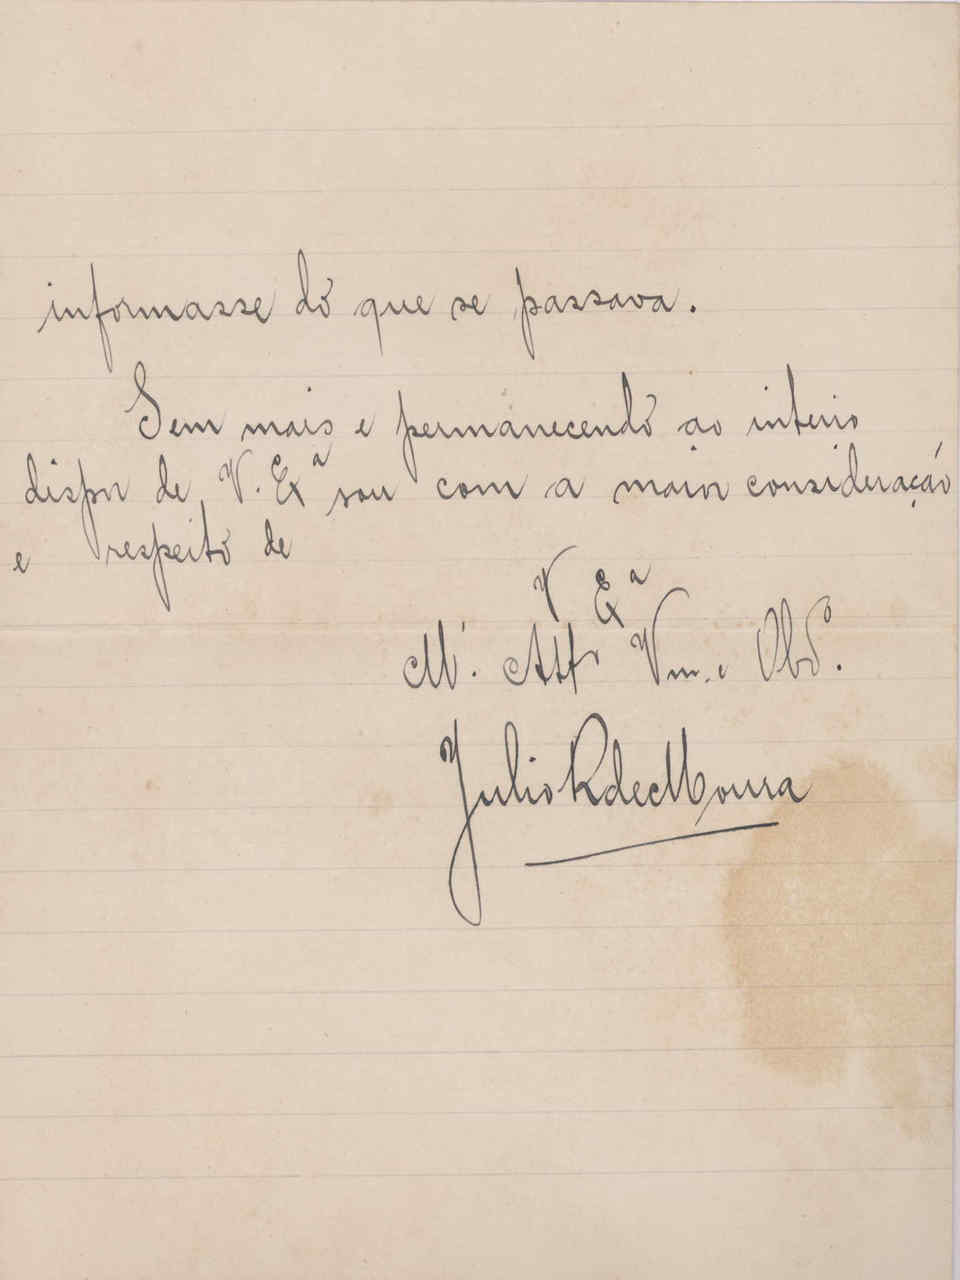 informasse do que se passava.
Sem mais e permanecendo ao inteiro
dispor de V. Exª sou com a maior consideração
e respeito de
V Exª
Mº. Attº Vnr. e Obdº.
Julio R de Moura